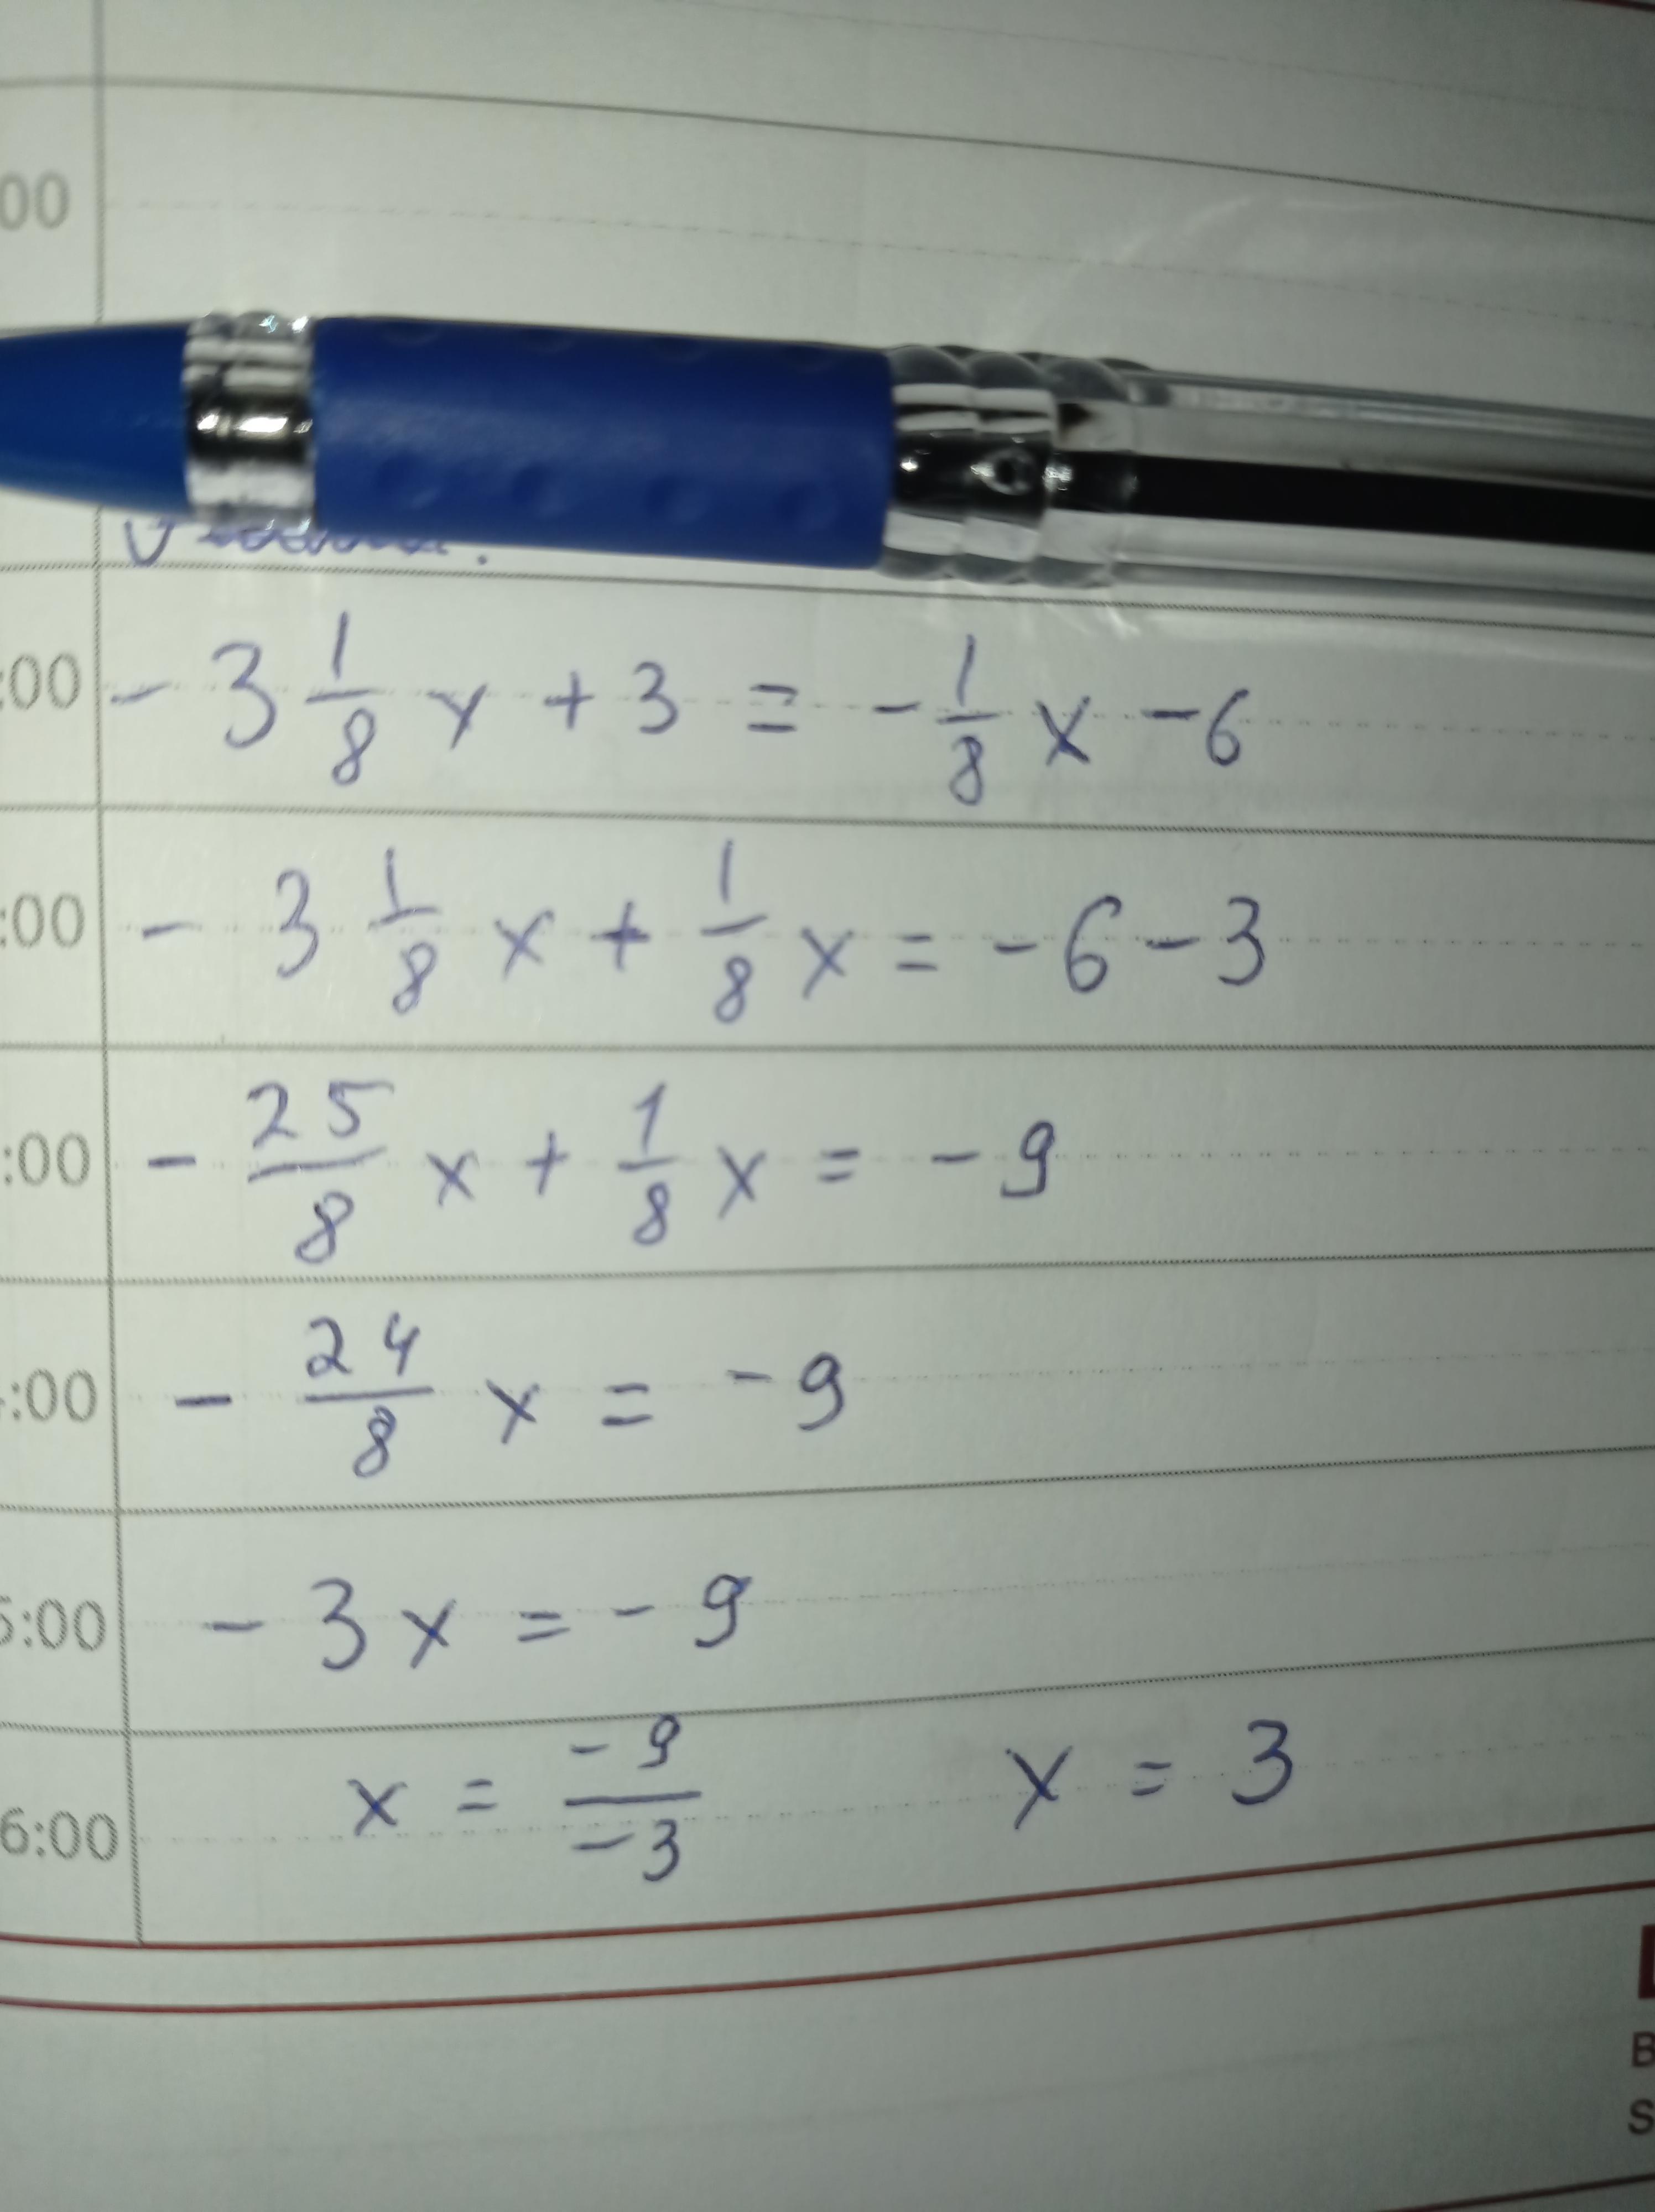 00
:00 - 3 1/8 x + 3 = - 1/8 x - 6
:00 - 3 1/8 x + 1/8 x = - 6 - 3
:00 - 25/8 x + 1/8 x = - 9
:00 - 24/8 x = - 9
5:00 - 3 x = - 9
6:00 x = -9/-3 x = 3
B
S